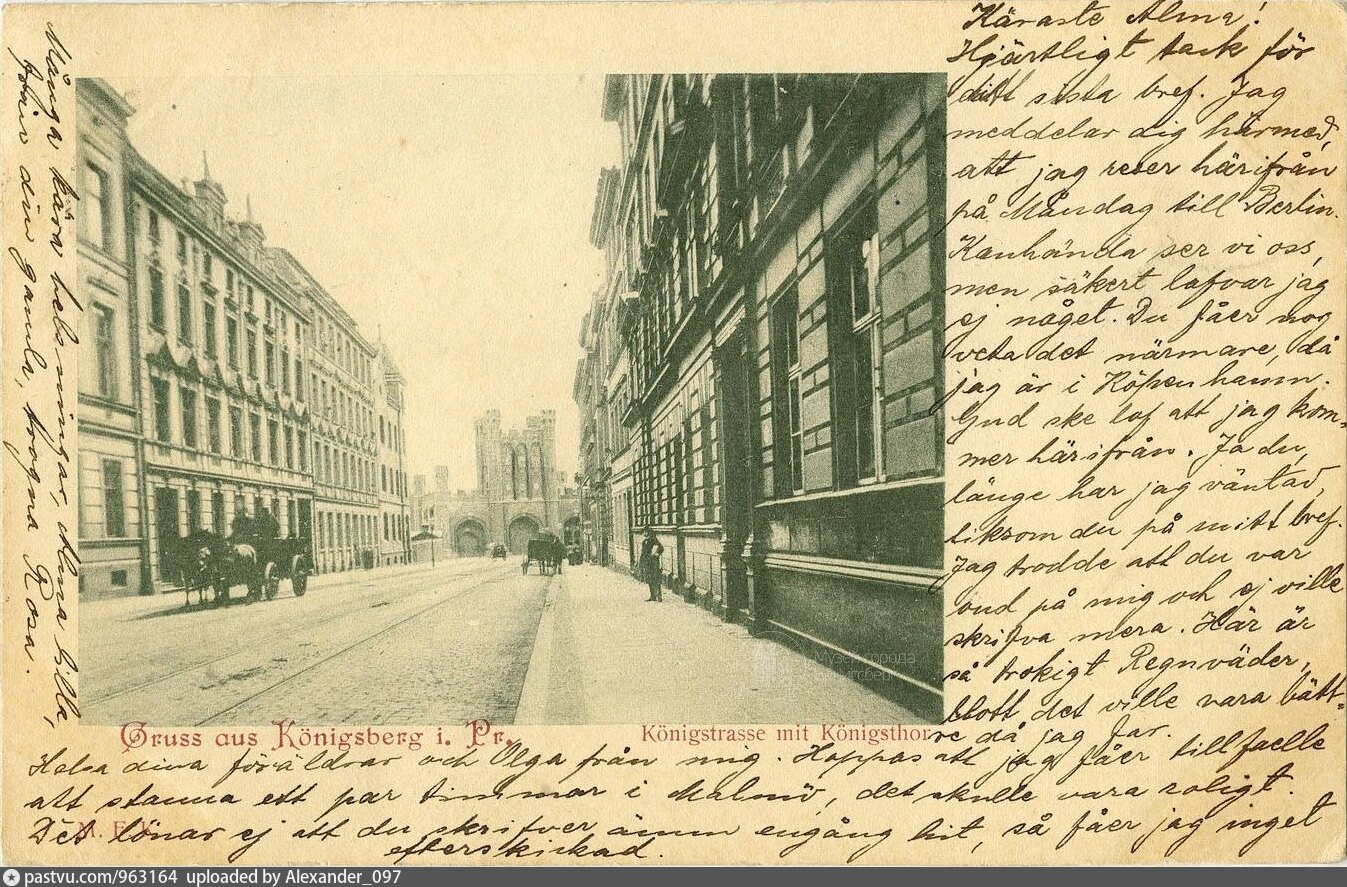 Käraste Alma!
Hjärtligt tack för
ditt sista bref. Jag
meddelar dig härmed,
att jag reser härifrån
på Måndag till Berlin.
Kanhända ser vi oss,
men säkert lofvar jag
ej något. Du fåer nog
veta det närmare, då
jag är i Köpenhamn.
Gud ske lof att jag kom-
mer härifrån. Ja du,
länge har jag väntad,
liksom du på mitt bref.
Jag trodde att du var
ond på mig och ej ville
skrifva mera. Här är
så trokigt Regnväder,
blott det ville vara bätt-
re då jag far.
Helsa dina föräldrar och Olga från mig. Hoppas att jag fåer tillfaelle
att stanna ett par timmar i Malmö, det skulle vara roligt.
Det lönar ej att du skrifver ännu engång hit, så fåer jag inget
efterskickad.
Många kära helsningar, Alma lilla,
från din gamla, trogna Rosa.
Gruss aus Königsberg i. Pr.
Königstrasse mit Königsthor
Музей города
pastvu.com/963164 uploaded by Alexander_097